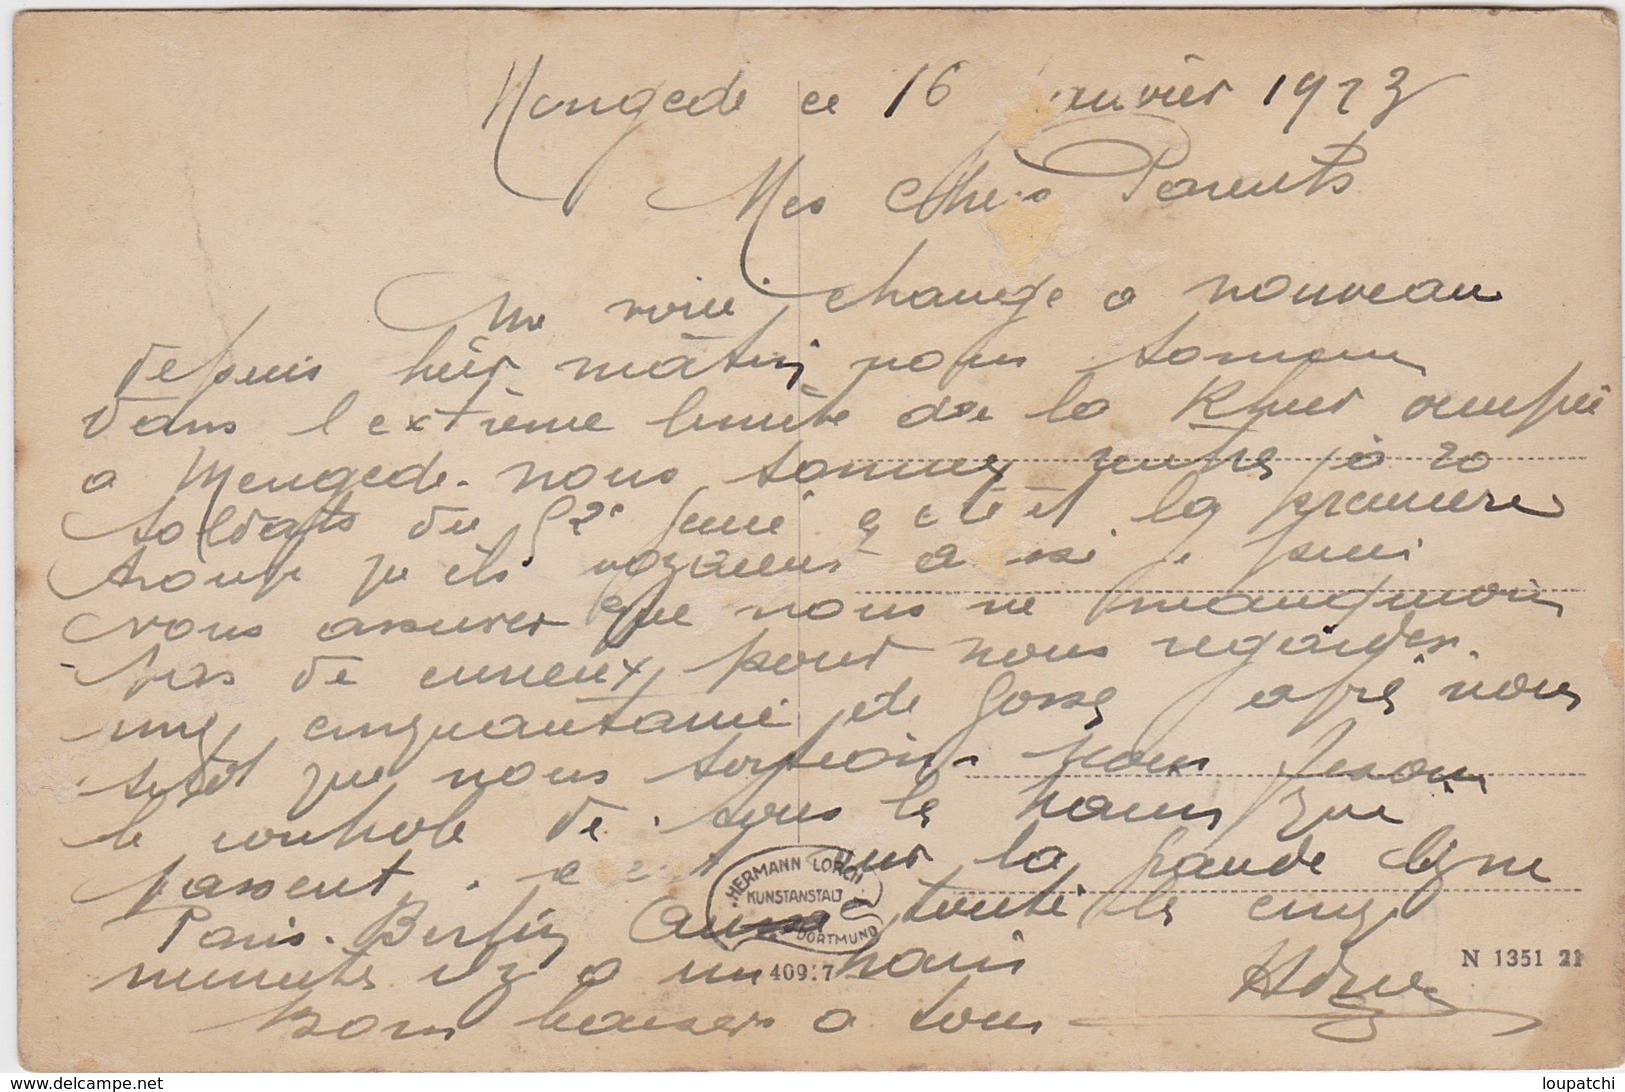 Mengede ce 16 janvier 1923
Mes Chers Parents
Me voici change a nouveau
depuis hier mâtin nous sommes
dans l'extrème limite de la Rhur occupée
a Mengede. nous sommes à 20
soldats du c'était la premiere
troupe qu'ils voyaient aussi je puis
vous assurer que nous ne manquions
pas de curieux, pour nous regarder.
une cinquantaine de gosses apres nous
sitôt que nous sortions nous ferons
le controle de tous les trains qui
passent. c'est sur la grande ligne
Paris. Berlin Aussi toute les cinq
minutes il y a un train
Bons baisers a tous
HERMANN LORCH
KUNSTANSTALT
DORTMUND
409:7
N 1351 22
Delcampe.net
loupatchi